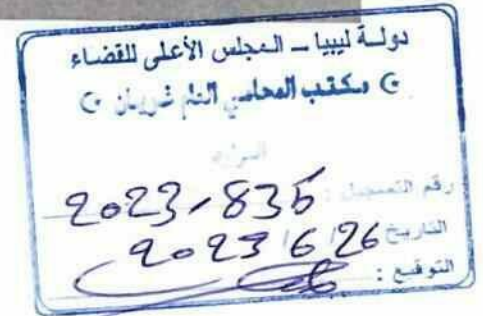 دولة ليبيا – المجلس الأعلى للقضاء
مكتب المحامي العام غريان
رقم التسجيل : 2023-835
التاريخ 2023/6/26
التوقيع :